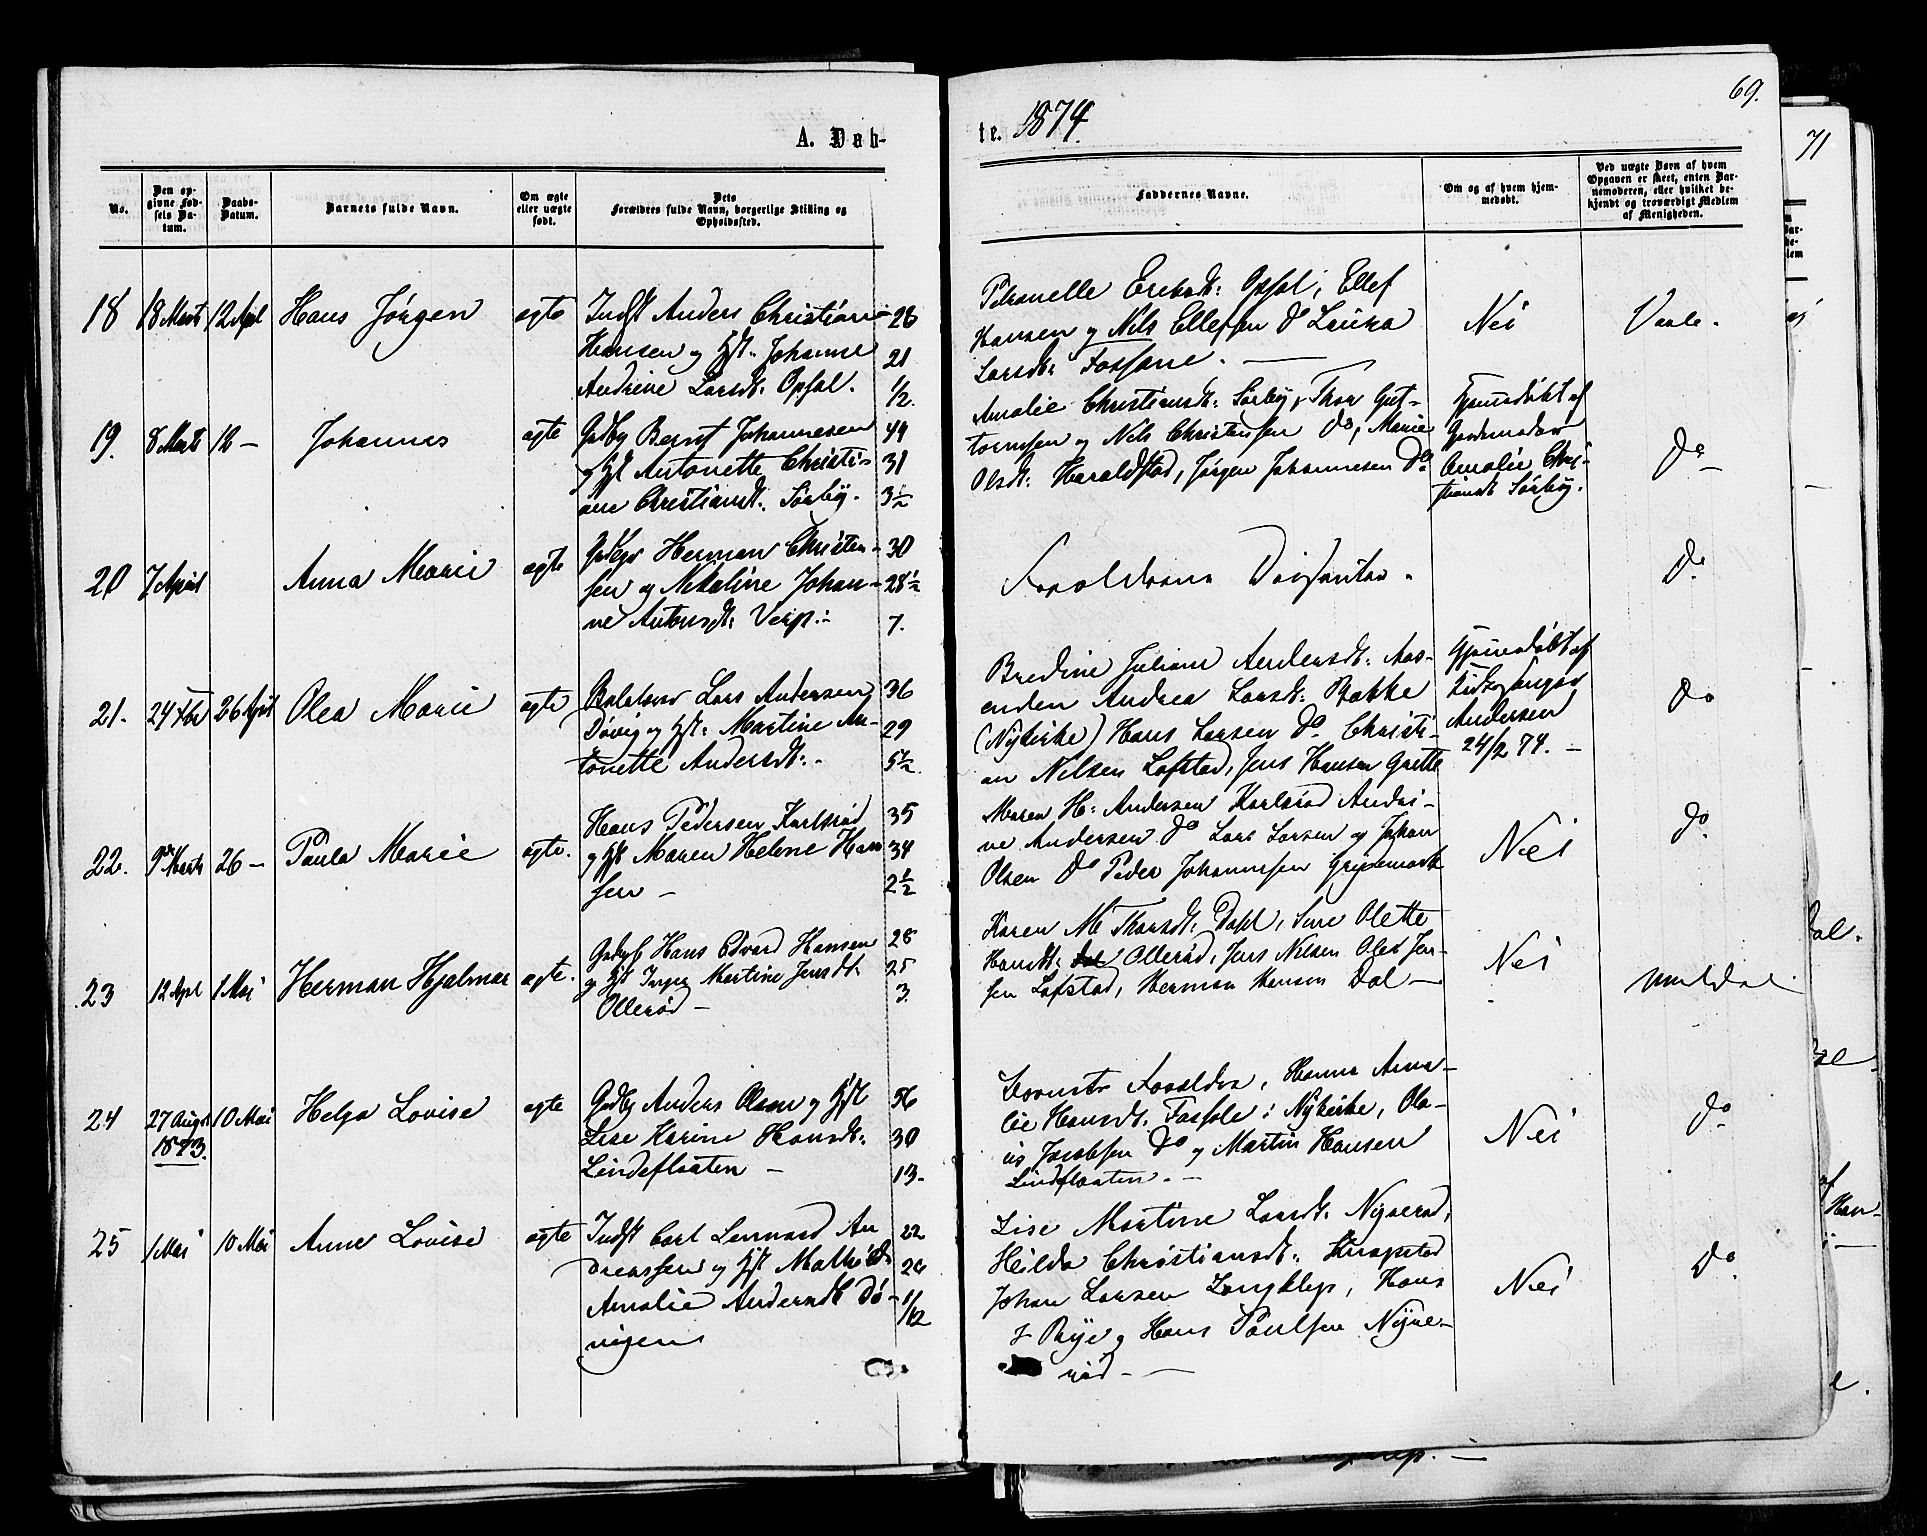 69.
71
A. Døb-
te. 1874.
No.
Den op-
givne Fød-
sels Da-
tum.
Daabs-
Datum.
Barnets fulde Navn.
Om ægte
eller uægte
født.
Dets
Forældres fulde Navn, borgerlige Stilling og
Opholdssted.
Faddernes Navne.
Om og af hvem hjem-
medøbt.
Ved uægte Børn af hvem
Opgaven er skeet, enten Bar-
nemoderen, eller hvilket be-
kjendt og troværdigt Medlem
af Menigheden.
18 18 Marts 12 April Hans Jørgen ægte
Indst Anders Christian 26
Hansen og Hst. Johanne 21
Andrine Larsdt: Opsal. 1/2.
Petronelle Opsal, Ellef
Hansen og Nils Ellefsen Do Laura
Larsdt: Fossane.
Nei
Vaale.
19. 8 Marts 12 — Johannes ægte
Gdbg Bernt Johannesen 49
og Hst Antonette Christi- 31
ane Christiansdt: Sørby. 3½
Amalie Christiansdt: Sørby, Thor Gut-
tormsen og Nils Christensen Do, Marie
Olsdt: Haraldstad, Jørgen Johannesen Do
Hjemmedøbt af
Gudmoder
Amalie Chri-
stiansdt Sørby.
Do
20 7 April Anna Marie ægte
Herman Christen- 30
sen og Nikoline Johan- 28½
ne Antonsdt: Verp. 7.
Do
21. 24 Xbr 26 April Olea Marie ægte
Lars Andersen 36
Døvig og Hst: Martine An- 29
tonette Andersdt: 5½
Bredine Juliane Andersdt: Aas-
enden Andrea Larsdt: Bakke
(Nykirke) Hans Larsen Do Christi-
an Nilsen Lofstad, Jens Hansen Grette
Hjemmedøbt af
Kirkesanger
Andersen
24/2 74. —
Do
22. 9de Marts 26 — Paula Marie ægte.
Hans Pedersen Karlsrød 35
og Hst Maren Helene Han 34
sen — 2½
Maren H: Andersen Karlsrød Andri-
ne Andersen Do Lars Larsen og Johan
Olsen Do Peder Johannesen
Nei
Do
23 12 Apl 1 Mai Herman Hjalmar ægte.
Hans Edvard Hansen 28
og Hst Inger Martine Jensdt: 25
Ollerød — 3
Karen M. Thorsdt: Dahl, Olette
Hansdt: Ollerød, Jens Nilsen Olaf Jen-
sen Lofstad, Herman Hansen Dal —
Nei
Undrdal
24 27 Augs 10 Mai Helga Lovise ægte
1873.
Gdbg Anders Olsen og Hst 56
Lise Karine Hansdt: 30
Lindefloaten — 13.
Hanna Ama-
lie Hansdt: Fossole: Nykirke, Ola-
us Jacobsen Do og Martin Hansen
Lindefloaten. —
Nei
Do
25 1 Mai 10 Mai Anne Lovise ægte
Indst Carl Lennard An 22
dreassen og Hst Mathilde
Amalie Andersdt Dø- 1/12
vigen
Lise Martine Larsdt: Nyrerød,
Hilda Christiansdt: Knapstad
Johan Larsen Langklep, Hans
J Rye og Hans Paulsen Nyre-
rød —
Nei
Do